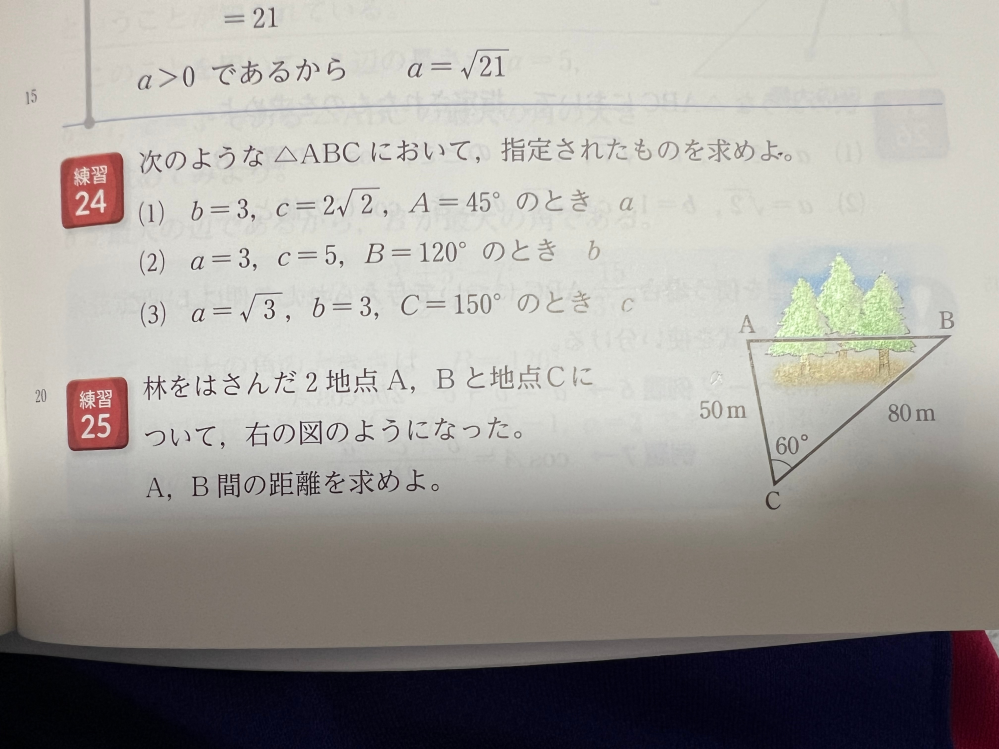 = 21
a>0 であるから a=√21
15
練習 24 次のような △ABC において，指定されたものを求めよ。
(1) b=3, c=2√2, A=45° のとき a
(2) a=3, c=5, B=120° のとき b
(3) a=√3, b=3, C=150° のとき c
20
練習 25 林をはさんだ 2 地点 A，B と地点 C に
ついて，右の図のようになった。
A，B 間の距離を求めよ。
A B
50 m 80 m
60°
C